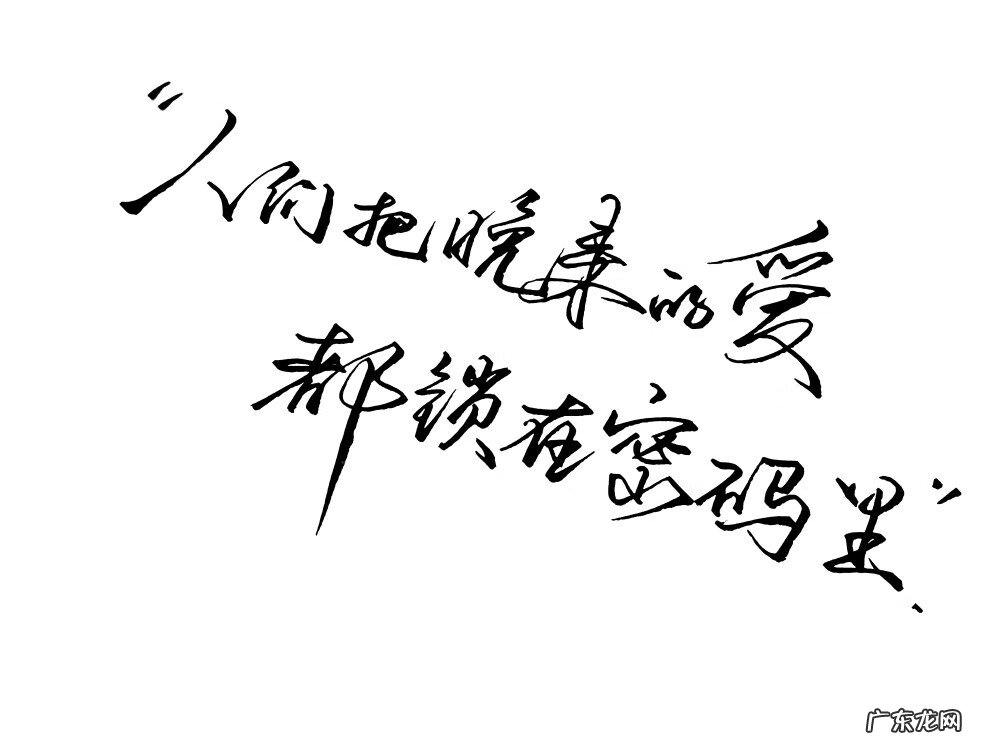 "人们把晚来的爱
都锁在密码里".
广东龙网